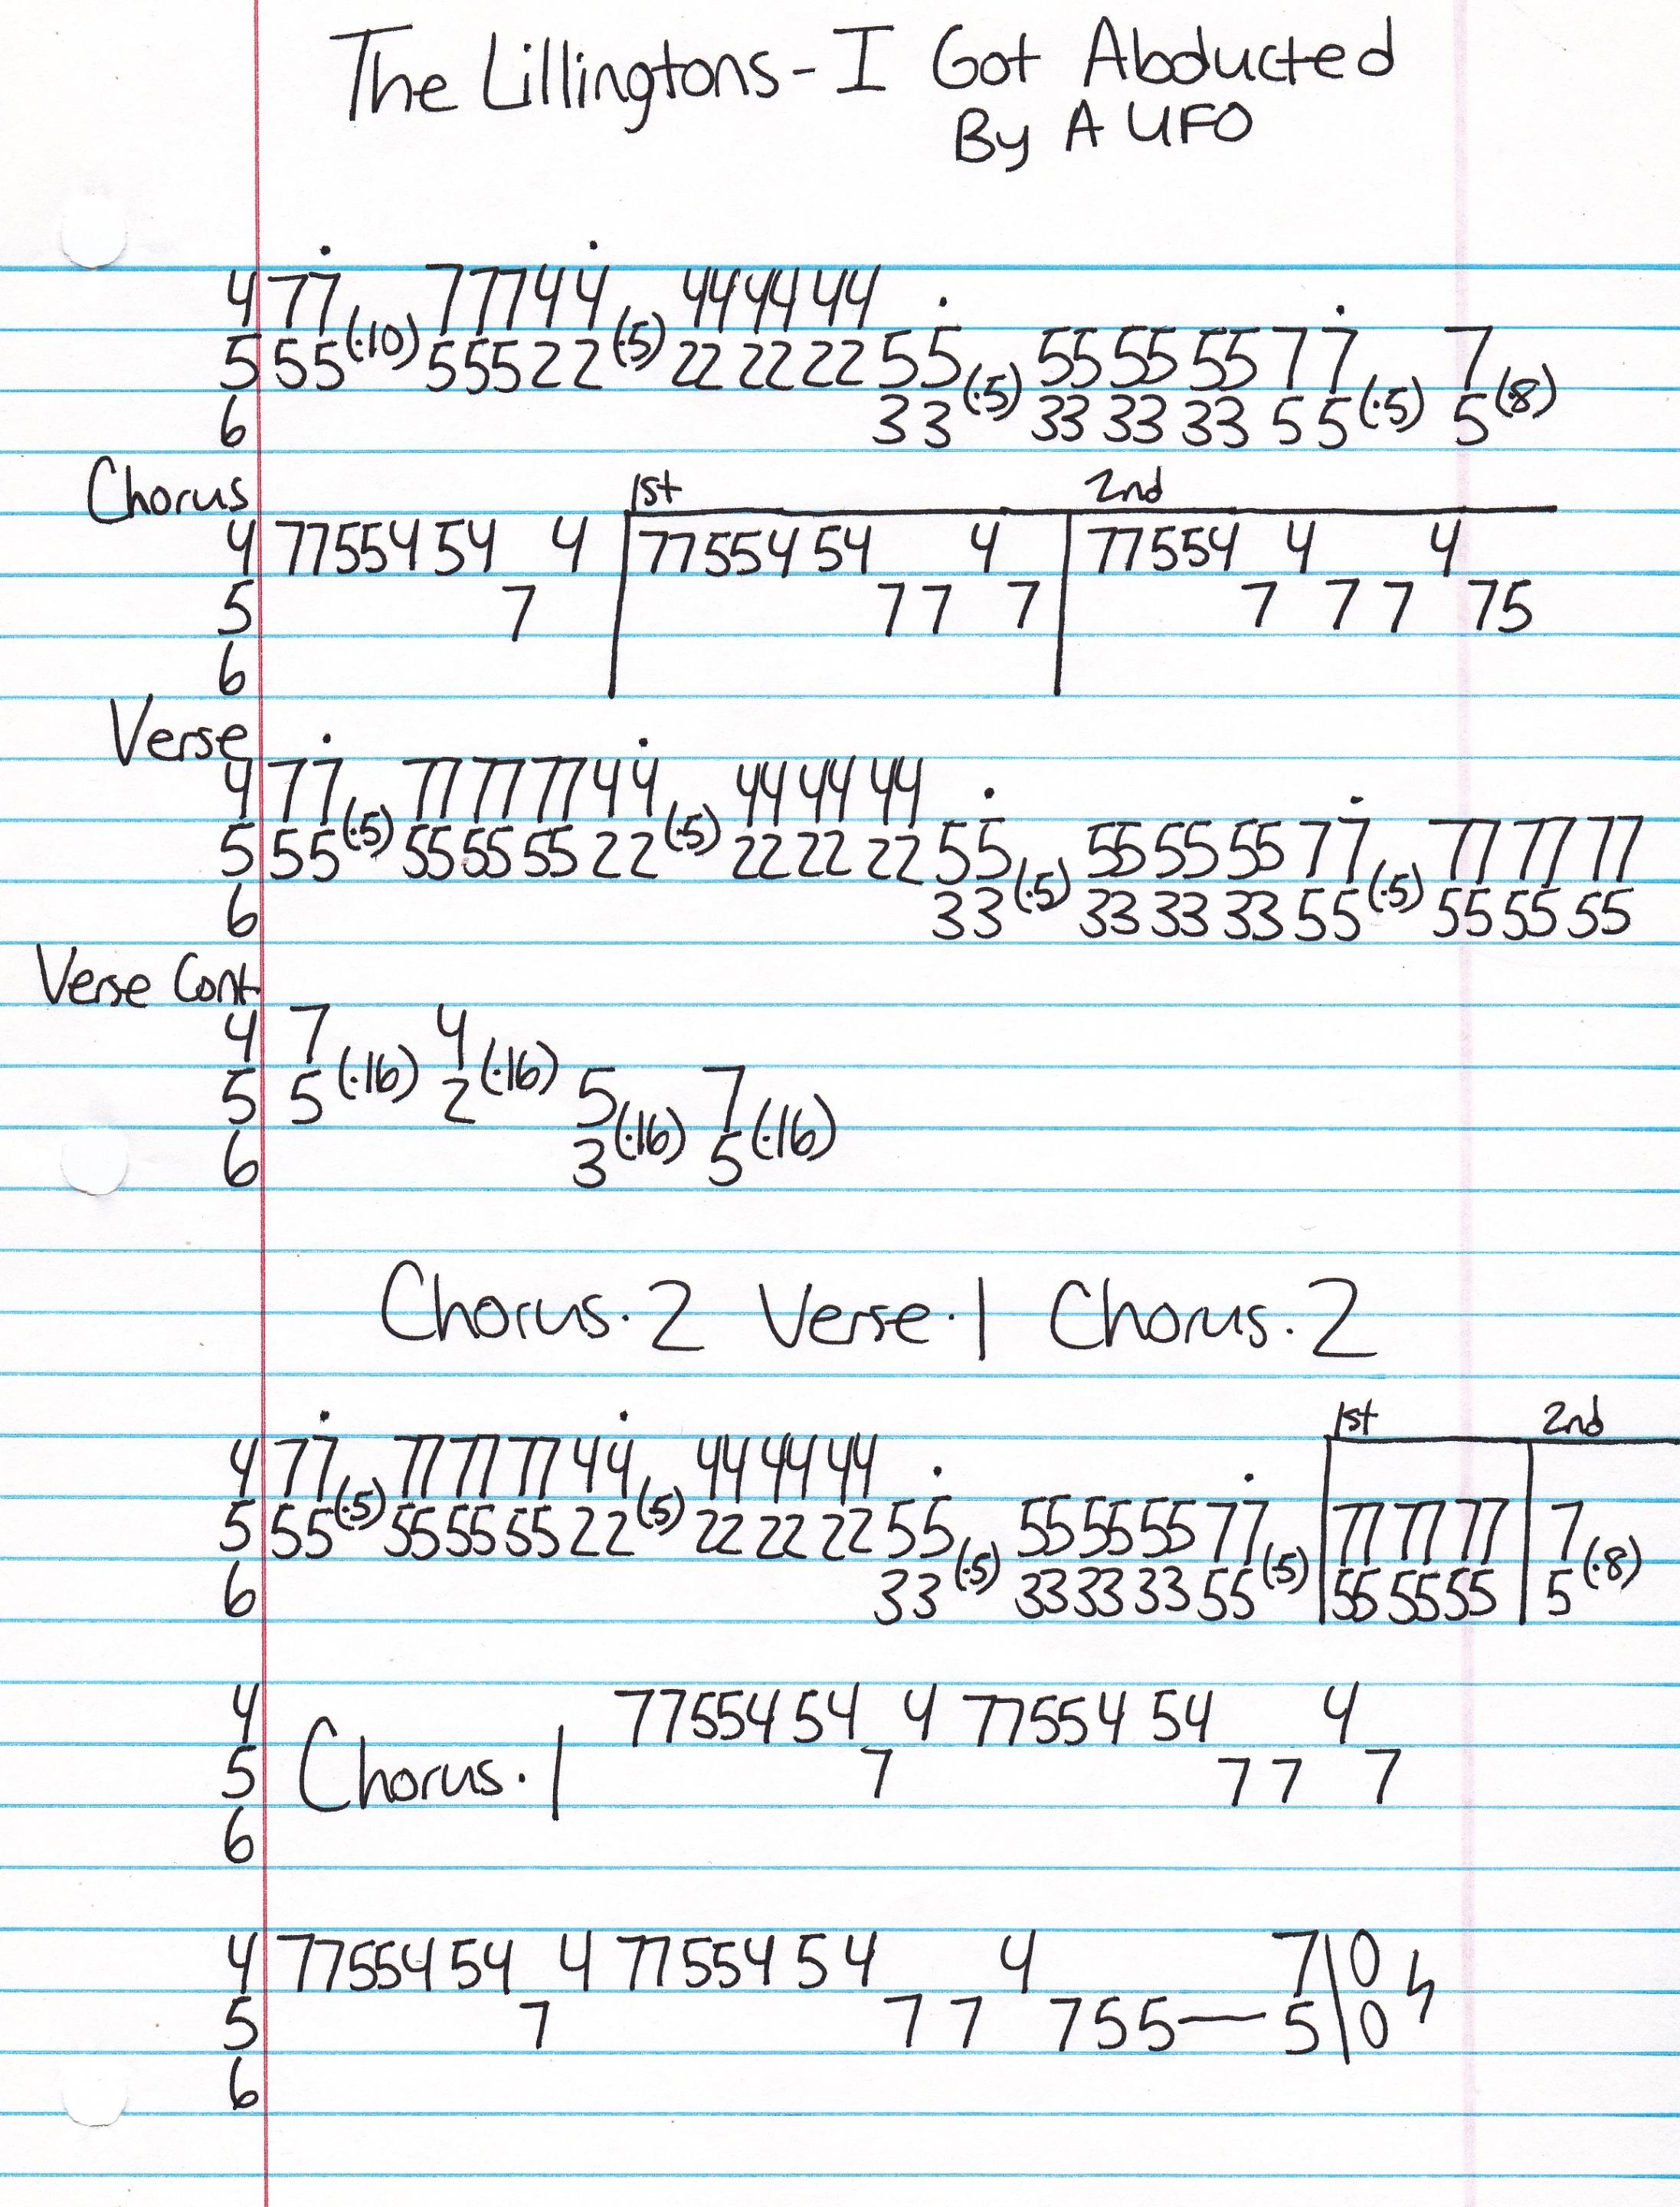 The Lillingtons - I Got Abducted
By A UFO
4 77̇ 77744̇ 44 44 44
5 55(·10) 55522(·5) 22 22 22 55̇ 55 55 55 77̇ 7
6 33(·5) 33 33 33 55(·5) 5(·8)
Chorus 1st 2nd
4 7755454 4 7755454 4 77554 4 4
5 7 77 7 7 77 75
6
Verse
4 77̇ 77 77 77 44̇ 44 44 44
5 55(·5) 55 55 55 22(·5) 22 22 22 55̇ 55 55 55 77̇ 77 77 77
6 33(·5) 33 33 33 55(·5) 55 55 55
Verse Cont
4 7 4
5 5(·16) 2(·16) 5 7
6 3(·16) 5(·16)
Chorus·2 Verse·1 Chorus·2
1st 2nd
4 77̇ 77 77 77 44̇ 44 44 44
5 55(·5) 55 55 55 22(·5) 22 22 22 55̇ 55 55 55 77̇ 77 77 77 7
6 33(·5) 33 33 33 55(·5) 55 55 55 5(·8)
4 7755454 4 7755454 4
5 Chorus·1 7 77 7
6
4 7755454 4 7755454 4 7\0
5 7 77 755—5\0
6